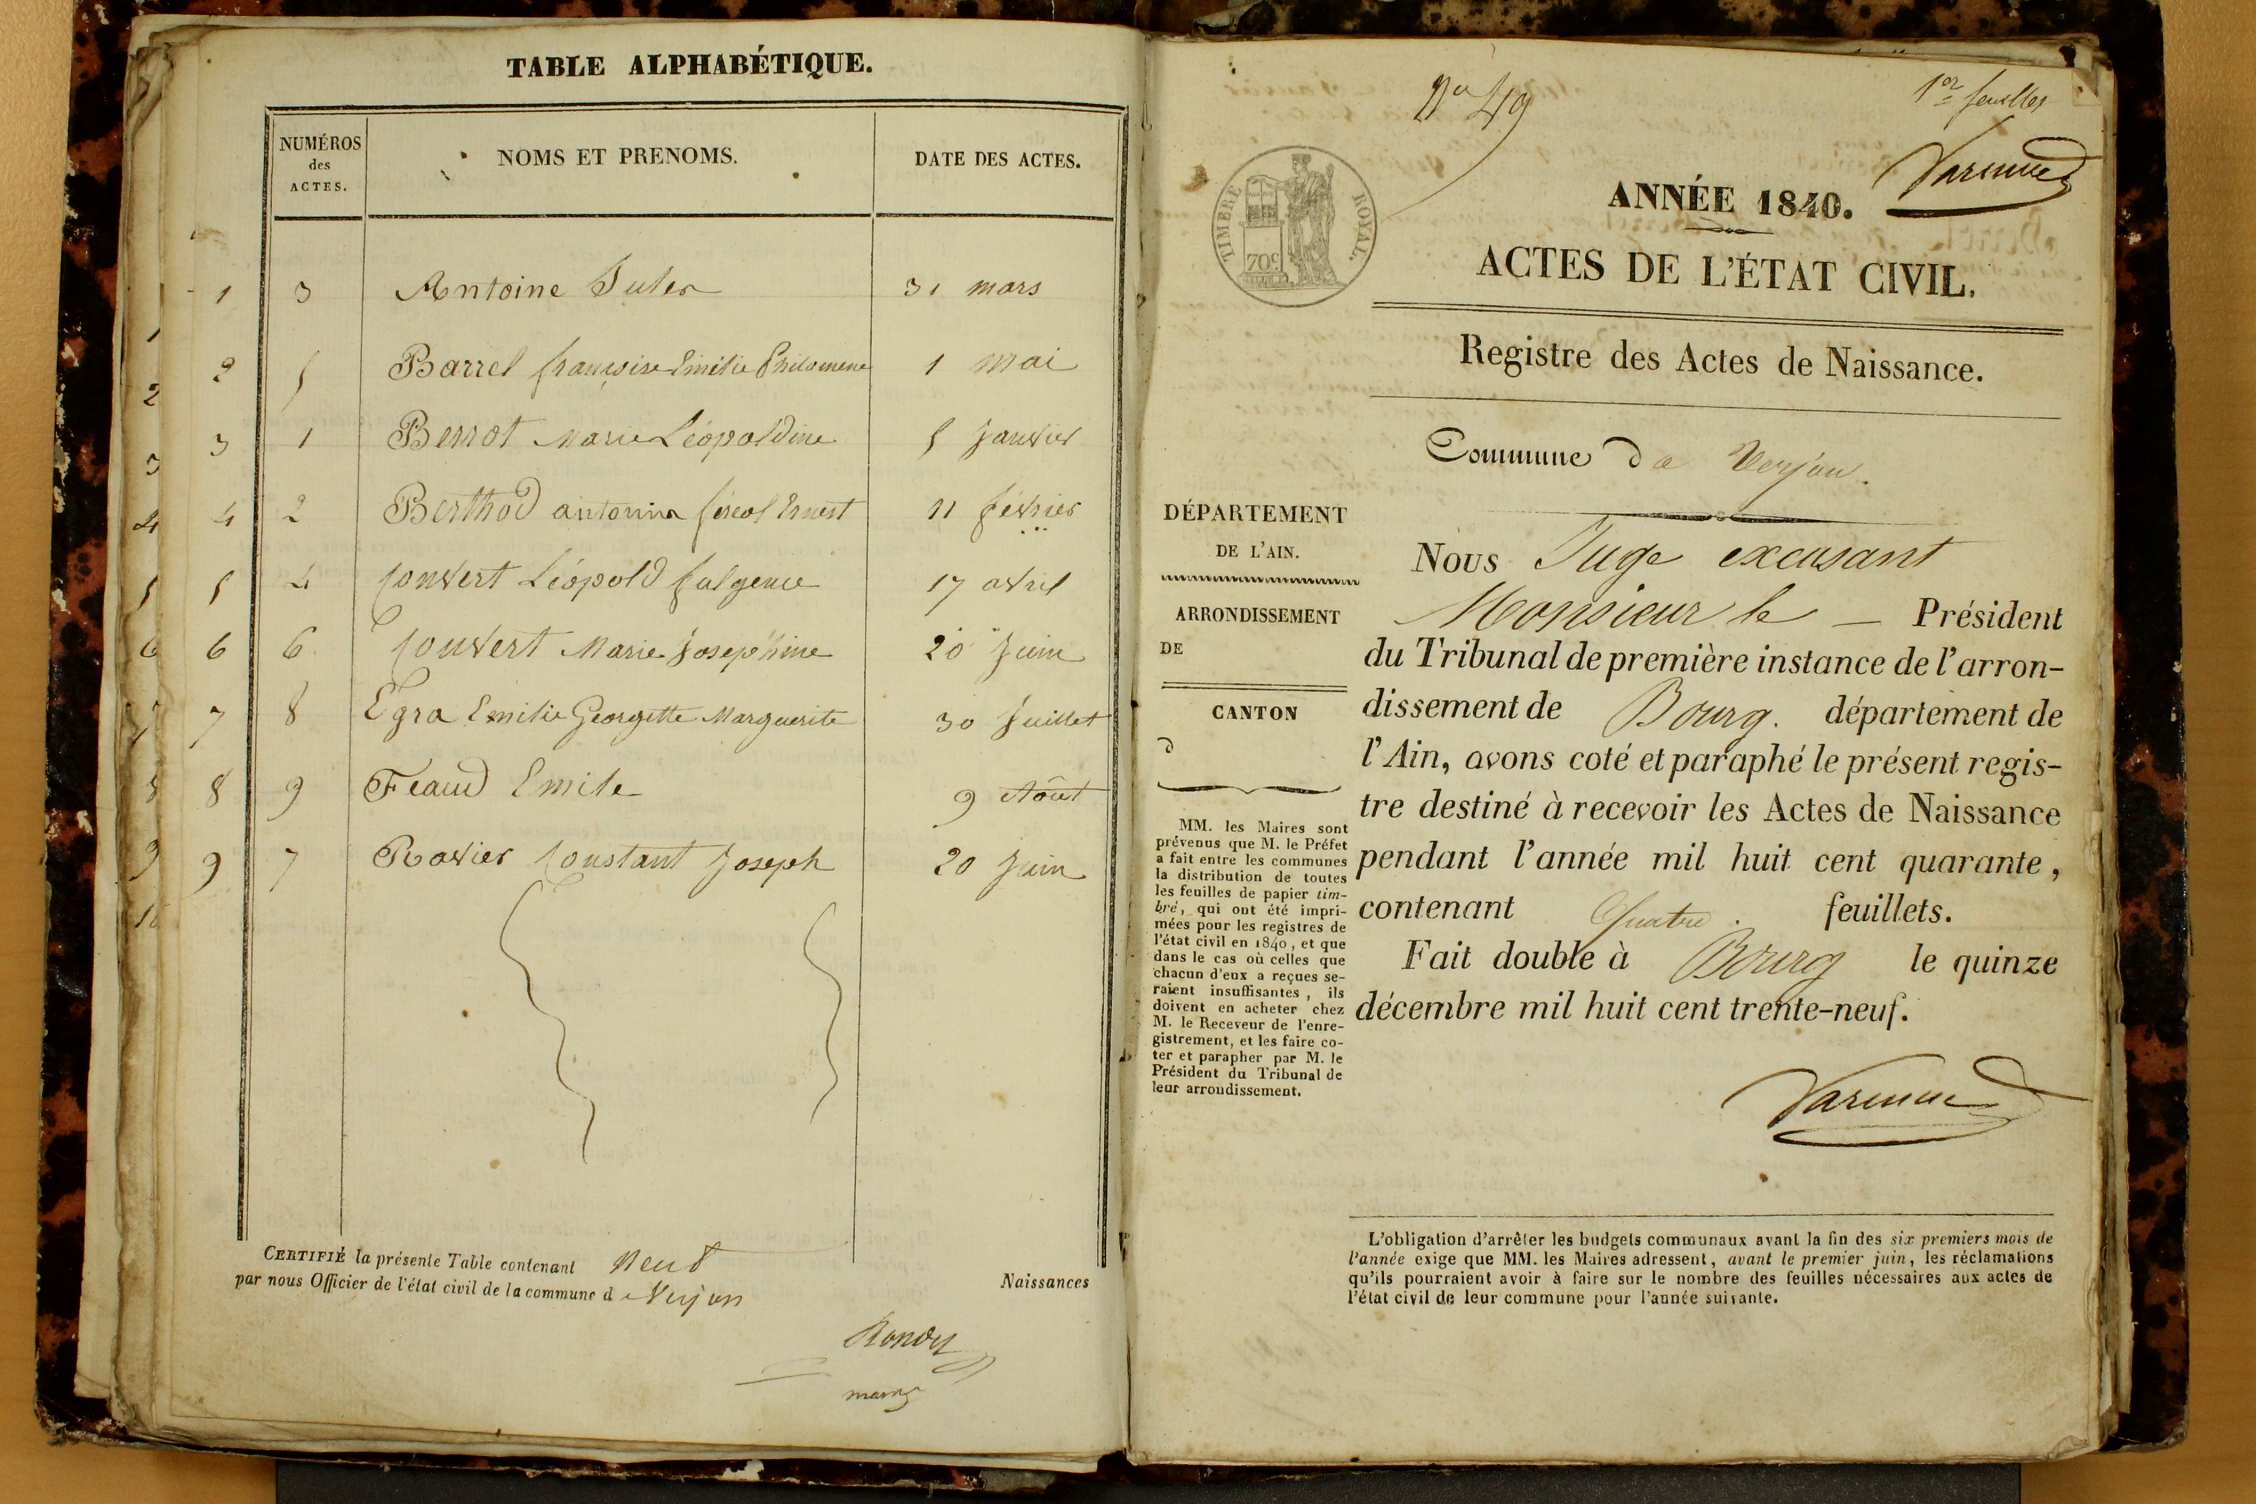 TABLE ALPHABÉTIQUE.
NUMÉROS des ACTES. NOMS ET PRENOMS. DATE DES ACTES.
1 3 Antoine Jules 31 mars
2 5 Barrel françoise Emilie Philomene 1 mai
3 1 Berrot Marie Léopoldine 5 janvier
4 2 Berthod antonin féréol Ernest 11 février
5 4 Convert Léopold fulgence 17 avril
6 6 Convert Marie Josephine 20 Juin
7 8 Egra Emilie Georgette Marguerite 30 Juillet
8 9 Feaud Emile 9 Août
9 7 Ravier Constant Joseph 20 Juin
1
2
3
4
5
6
7
8
9
10
CERTIFIÉ la présente Table contenant neuf Naissances
par nous Officier de l'état civil de la commune de Verjon
Rondet
maire
No 49
1er feuillet
Varenne
TIMBRE ROYAL.
70c
ANNÉE 1840.
ACTES DE L'ÉTAT CIVIL.
Registre des Actes de Naissance.
Commune de Verjon.
DÉPARTEMENT
DE L'AIN.
ARRONDISSEMENT
DE
CANTON
d
MM. les Maires sont
prévenus que M. le Préfet
a fait entre les communes
la distribution de toutes
les feuilles de papier tim-
bré, qui ont été impri-
mées pour les registres de
l'état civil en 1840, et que
dans le cas où celles que
chacun d'eux a reçues se-
raient insuffisantes, ils
doivent en acheter chez
M. le Receveur de l'enre-
gistrement, et les faire co-
ter et parapher par M. le
Président du Tribunal de
leur arrondissement.
Nous Juge excusant
Monsieur le — Président
du Tribunal de première instance de l'arron-
dissement de Bourg. département de
l'Ain, avons coté et paraphé le présent regis-
tre destiné à recevoir les Actes de Naissance
pendant l'année mil huit cent quarante,
contenant Quatre. feuillets.
Fait double à Bourg le quinze
décembre mil huit cent trente-neuf.
Varenne
L'obligation d'arrêter les budgets communaux avant la fin des six premiers mois de
l'année exige que MM. les Maires adressent, avant le premier juin, les réclamations
qu'ils pourraient avoir à faire sur le nombre des feuilles nécessaires aux actes de
l'état civil de leur commune pour l'année suivante.